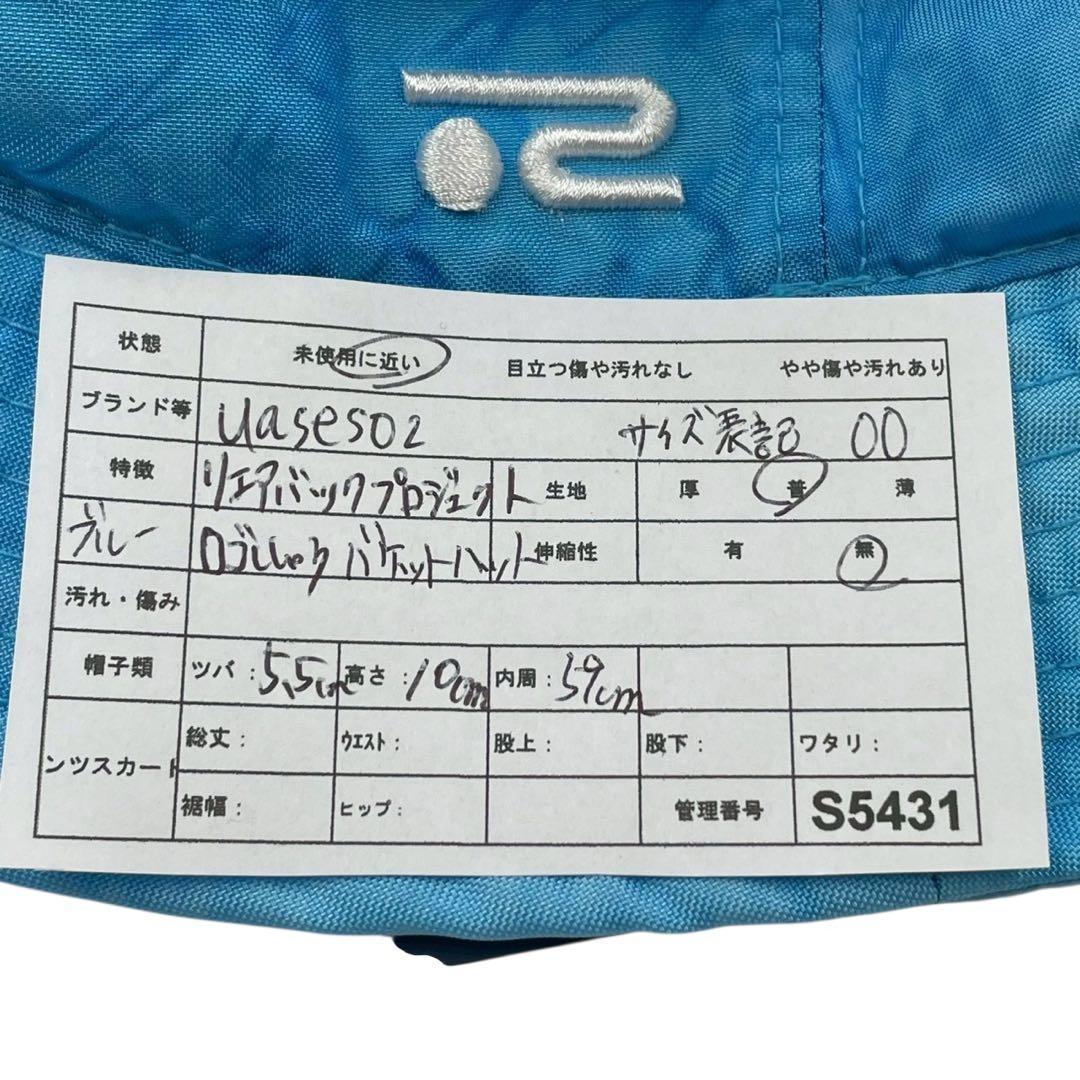 状態 未使用に近い 目立つ傷や汚れなし やや傷や汚れあり
ブランド等 uases02 サイズ表記 00
特徴 リエアバックプロジェクト 生地 厚 普 薄
ブルー ロゴししゅう バケットハット 伸縮性 有 無
汚れ・傷み
帽子類 ツバ：5.5cm 高さ：10cm 内周：59cm
ンツスカート 総丈： ウエスト： 股上： 股下： ワタリ：
裾幅： ヒップ： 管理番号 S5431